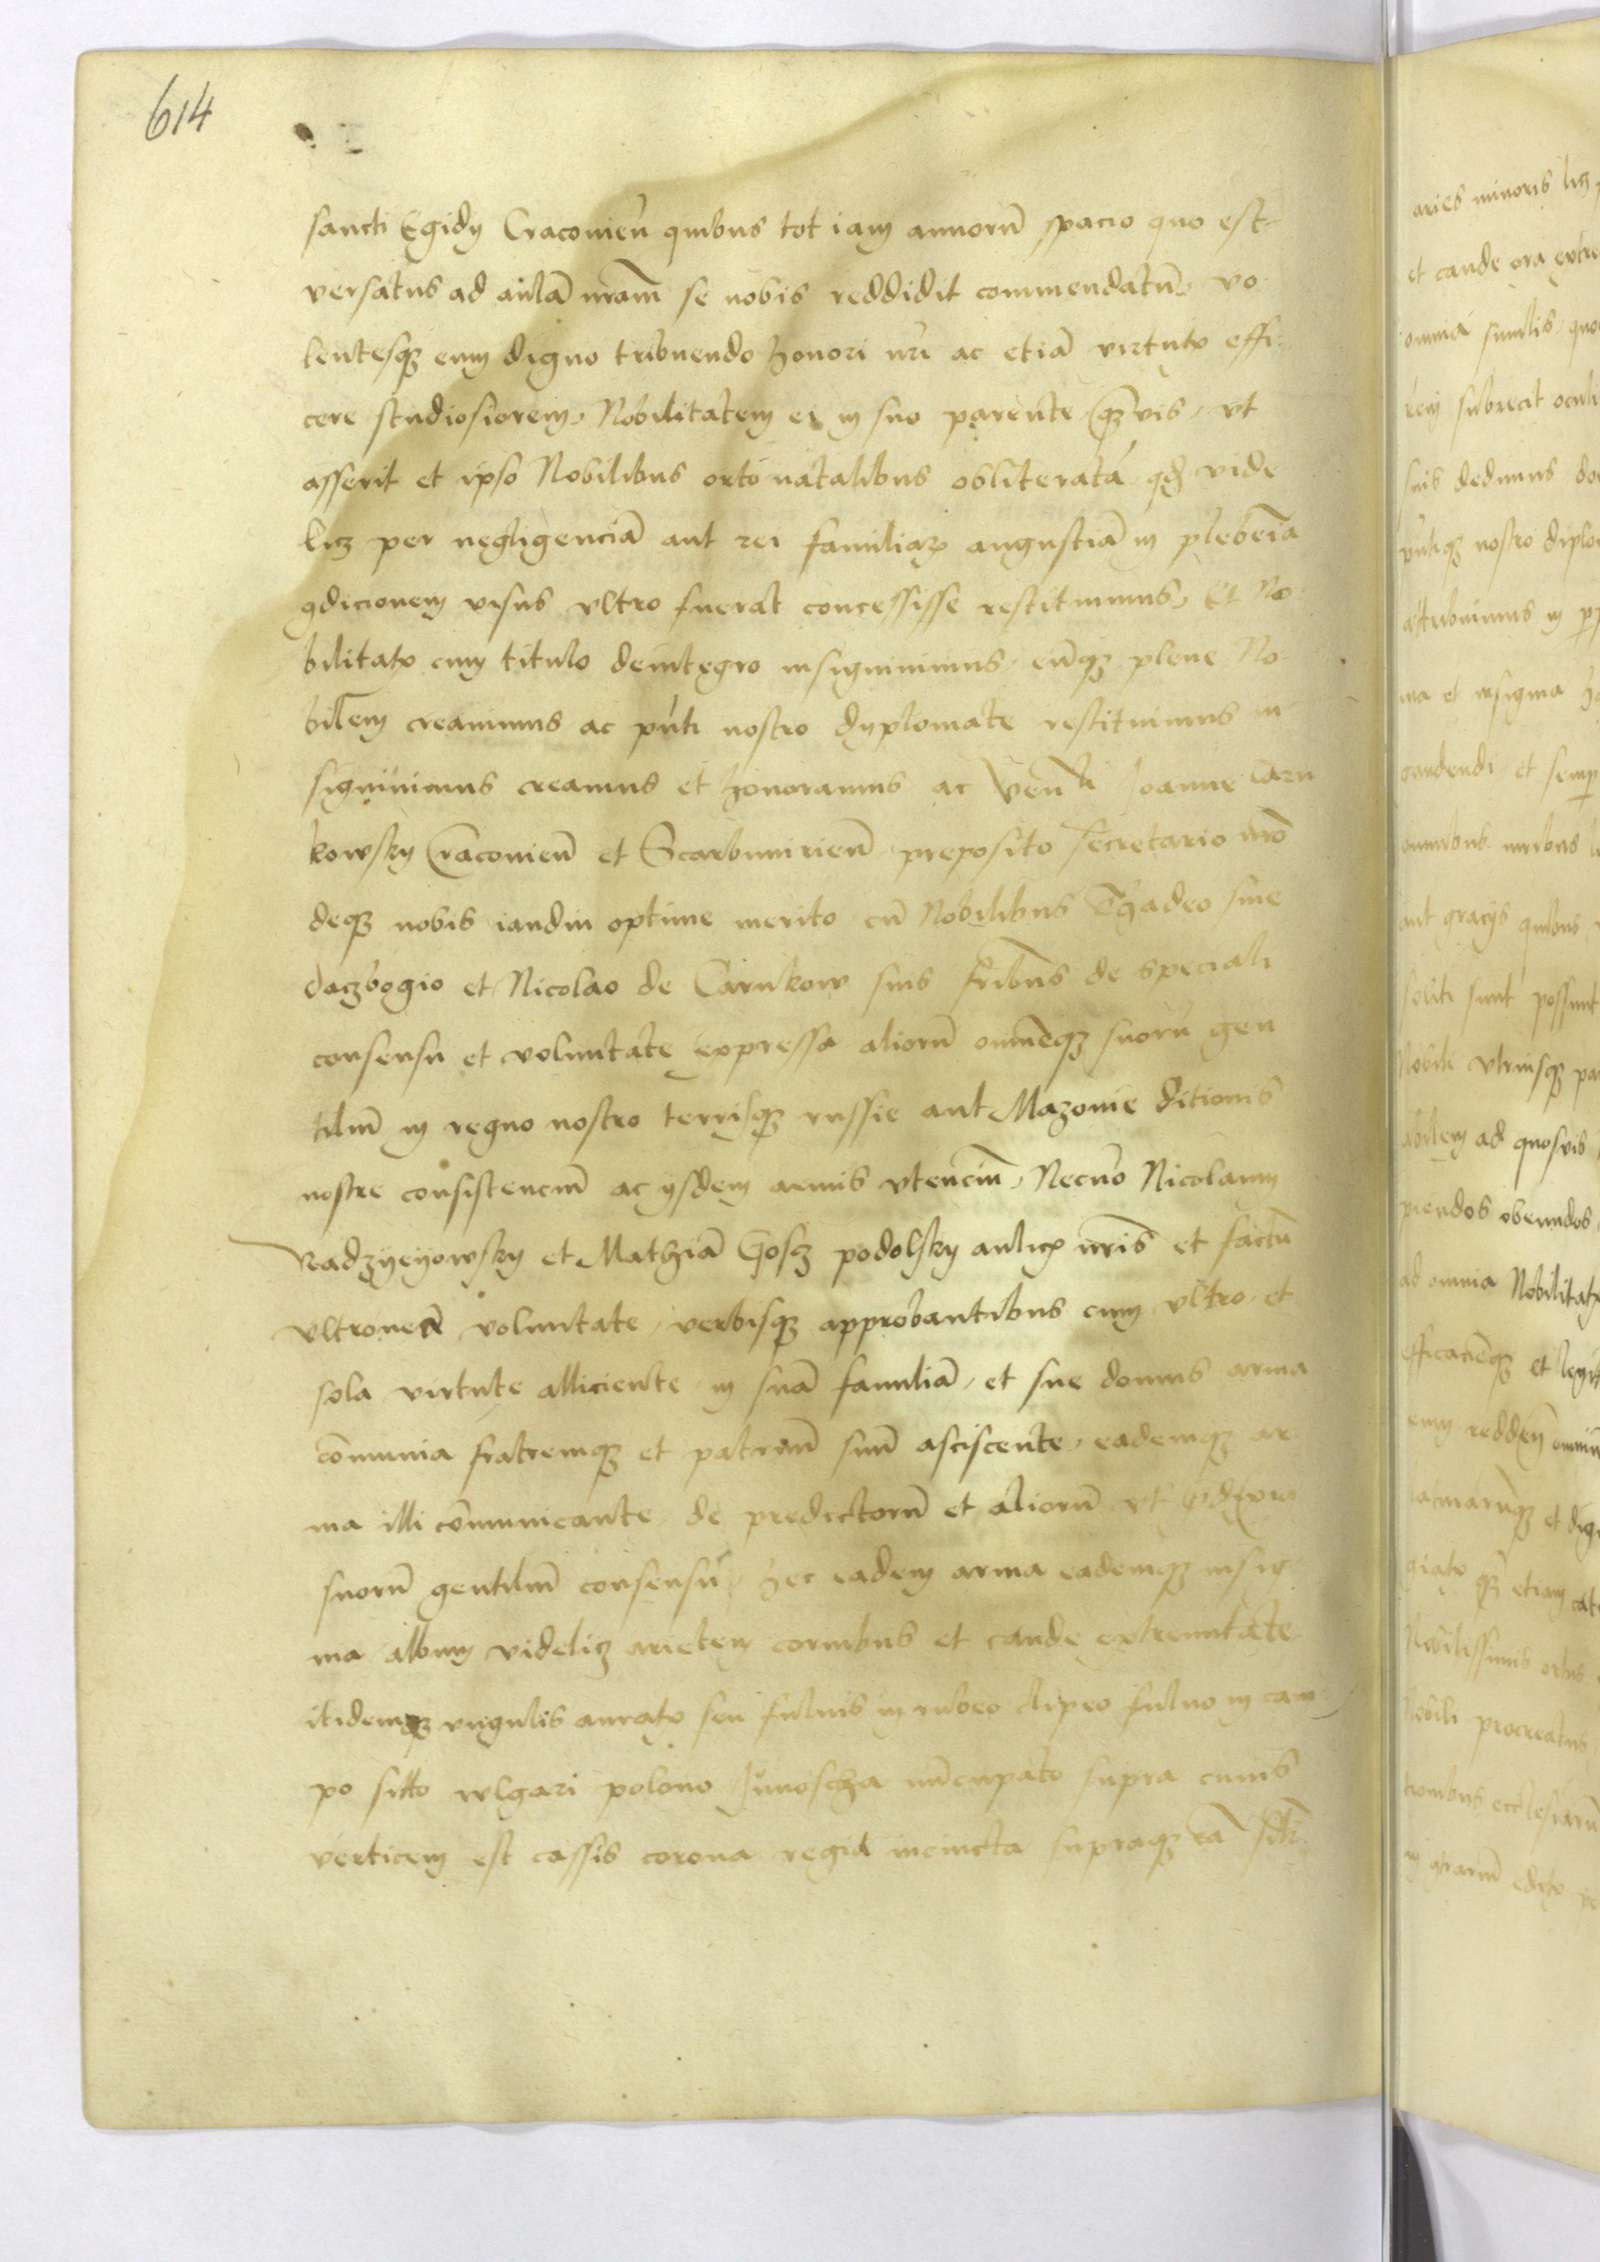 614
sancti Egidy Craconieñ quibus tot iam annorũ spacio quo est
versatus ad aulã nrãm se nobis reddidit commendatũ, vo
lentesqʒ eum digno tribuendo honori nři ac etiã virtutꝭ effi
cere studiosiorem, Nobilitatem ei in suo parente qʒvis, vt
asserit et ipso Nobilibus orto natalibus obliteratã qđ vide
licʒ per negligenciã aut rei familiarꝭ angustiã in plebeiã
ꝯdicionem visus vltro fuerat concessisse restituimus, Et No
bilitatꝭ cum titulo deintegro insigniuimus, eũqʒ plene No
bilem creauimus ac pñti nostro dyplomate restituimus in
signiuimus creamus et honoramus ac Venli Joanne Carn
kowsky Craconieñ et Scarbimirieñ preposito secretario nrõ
deqʒ nobis iandiu optime merito cũ Nobilibus Thadeo siue
daczbogio et Nicolao de Carnkow suis fribus de speciali
consensu et voluntate expressa aliorũ omneqʒ suorũ gen
tiliũ in regno nostro terrisqʒ russie aut Mazouie ditionis
nostre consistenciũ ac ysdem armis vtenciũ, Necnõ Nicolaum
Radzyeyowsky et Mathiã Gosʒ podolsky aulicꝭ nrĩs et factũ
vltronea voluntate, verbisqʒ approbantibus cum vltro et
sola virtute alliciente in suã familiã, et sue domus arma
cõmunia fratremqʒ et patruũ suũ asciscente, eademqʒ ar
ma illi cõmunicante de predictorũ et aliorũ vt
suorũ gentiliũ consensu, hec eadem arma eademqʒ insig
nia album videlicʒ arietem cornibus et caude extremitate
itidemqʒ vngulis auratꝭ seu fuluis in rubeo clipeo fuluo in cam
po sitto wlgari polono Junoscha nũcupato supra cuius
verticem est cassis corona regia incincta supraqʒ eã

aries minoris licʒ
et caude ora extre
omnia similis quo
subrecit oculi
suis dedimus
nostro diplo
attribuimus in
ma et insignia
gaudendi et semp
omnibus iuribus
aut gracijs quibus
soliti sunt possunt
Nobile vtriusqʒ pa
ad quosvis
obeundos
ad omnia Nobilitatꝭ
et legit
eum
et dig
etiam
Nobilissimis
Nobili procreatus
ecclesiarũ